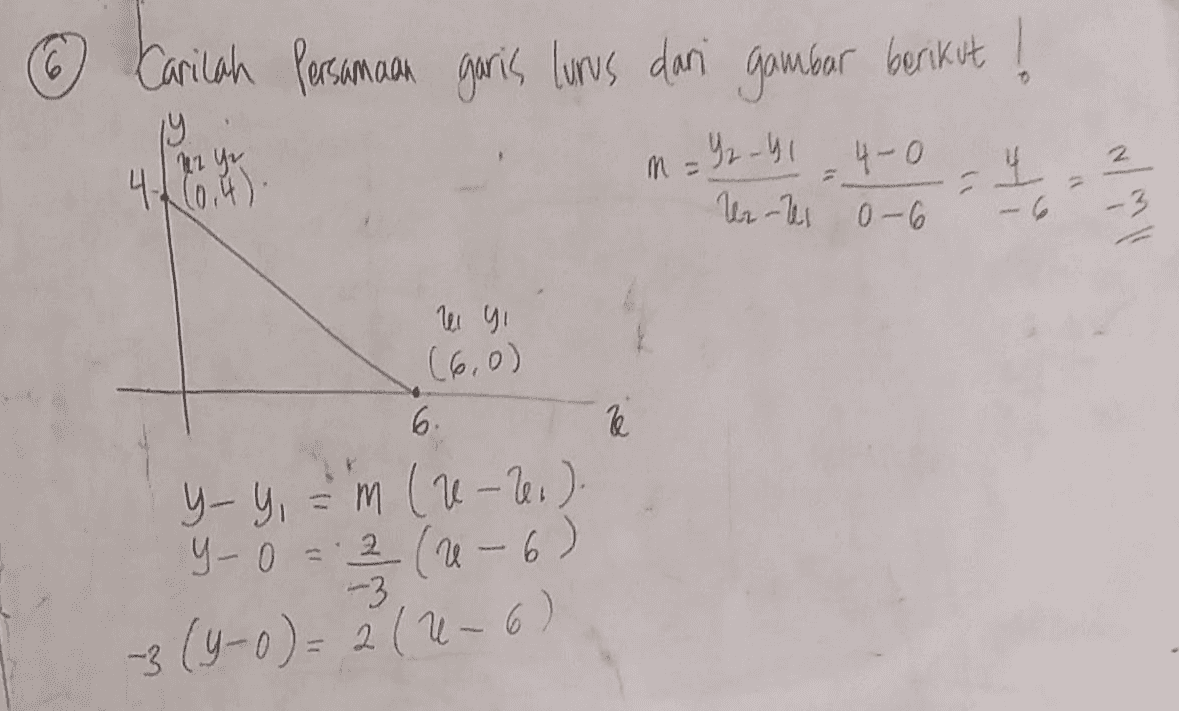 6 Carilah Persamaan garis lurus dari gambar berikut !
y
x2 y2
4 (0,4)
m = y2 - y1 / x2 - x1 = 4 - 0 / 0 - 6 = 4 / -6 = 2 / -3
x1 y1
(6,0)
6. x
y - y1 = m (x - x1).
y - 0 = 2 / -3 (x - 6)
-3 (y - 0) = 2 (x - 6)